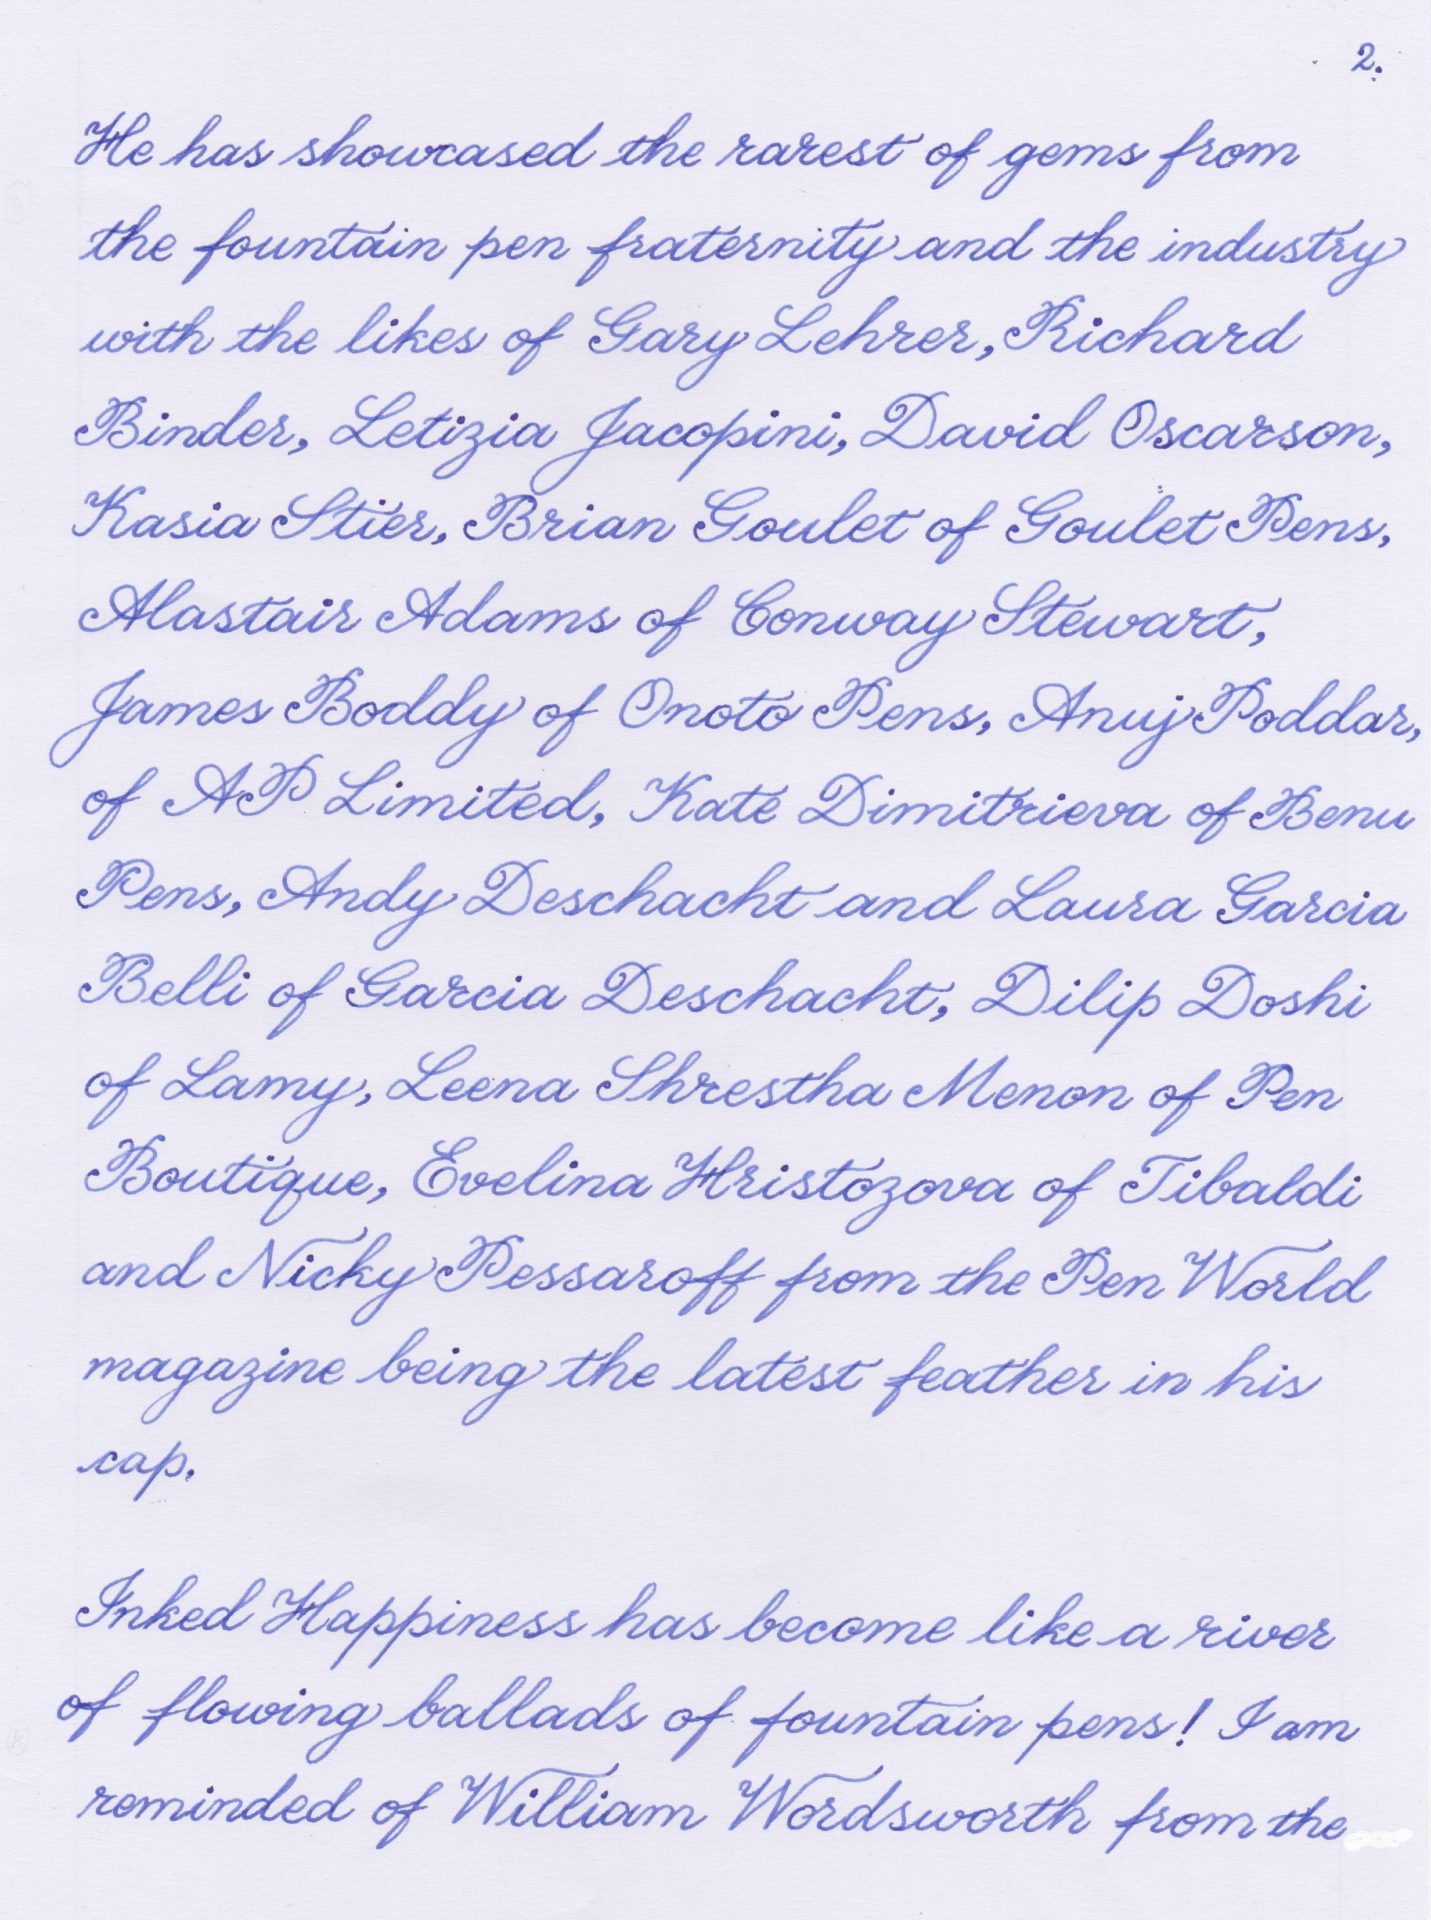 2.
He has showcased the rarest of gems from
the fountain pen fraternity and the industry
with the likes of Gary Lehrer, Richard
Binder, Letizia Jacopini, David Oscarson,
Kasia Stier, Brian Goulet of Goulet Pens,
Alastair Adams of Conway Stewart,
James Boddy of Onoto Pens, Anuj Poddar,
of AP Limited, Kate Dimitrieva of Benu
Pens, Andy Deschacht and Laura Garcia
Belli of Garcia Deschacht, Dilip Doshi
of Lamy, Leena Shrestha Menon of Pen
Boutique, Evelina Hristozova of Tibaldi
and Nicky Pessaroff from the Pen World
magazine being the latest feather in his
cap.
Inked Happiness has become like a river
of flowing ballads of fountain pens! I am
reminded of William Wordsworth from the